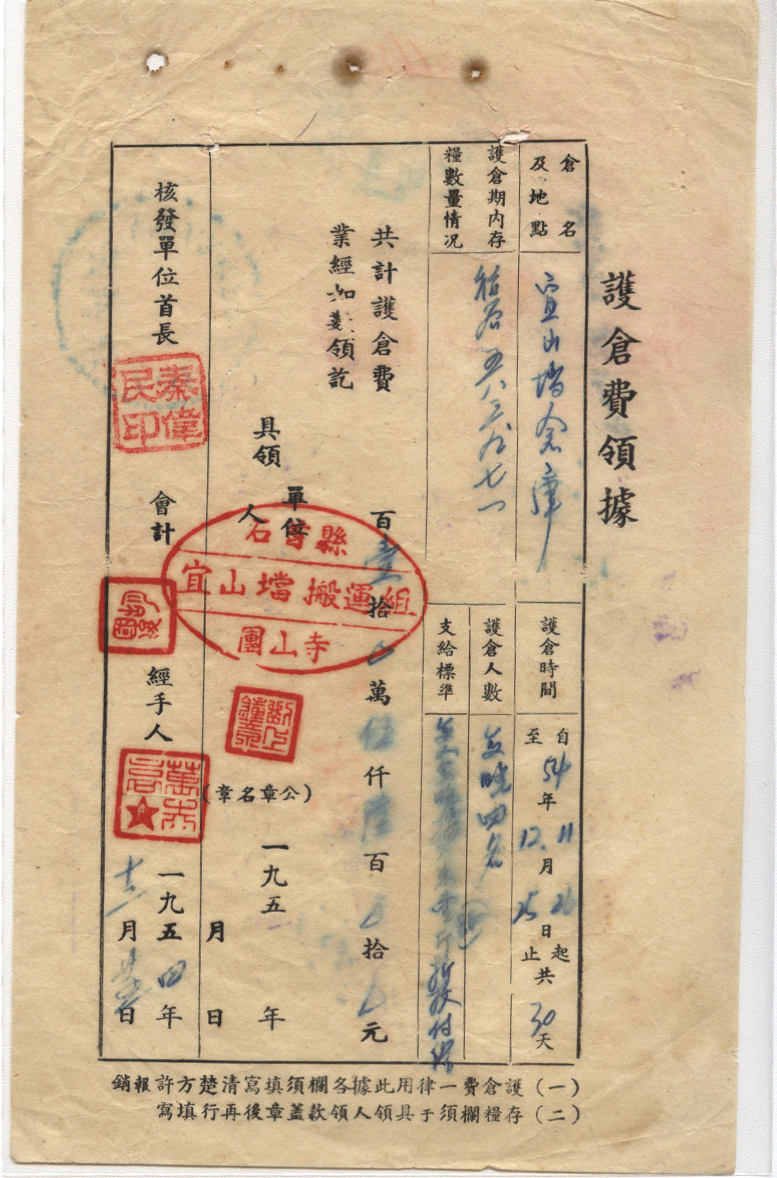 護倉費領據
倉名
及地點
宜山壋倉庫
護倉時間
自54年11月26日起
至12月25日止共30天
護倉期內存
糧數量情况
稻谷
護倉人數
每晚四名
支給標準
共計護倉費
百壹拾0萬伍仟陸百0拾0元
業經如數領訖
具領單位
人
(公章名章)
一九五 年 月 日
石首縣
宜山壋搬運組
團山寺
核發單位首長
秦偉民印
會計
經手人
一九五四年十二月 日
(一)護倉費一律用此據各欄須填寫清楚方許報銷
(二)存糧欄須于具領人領款盖章後再行填寫